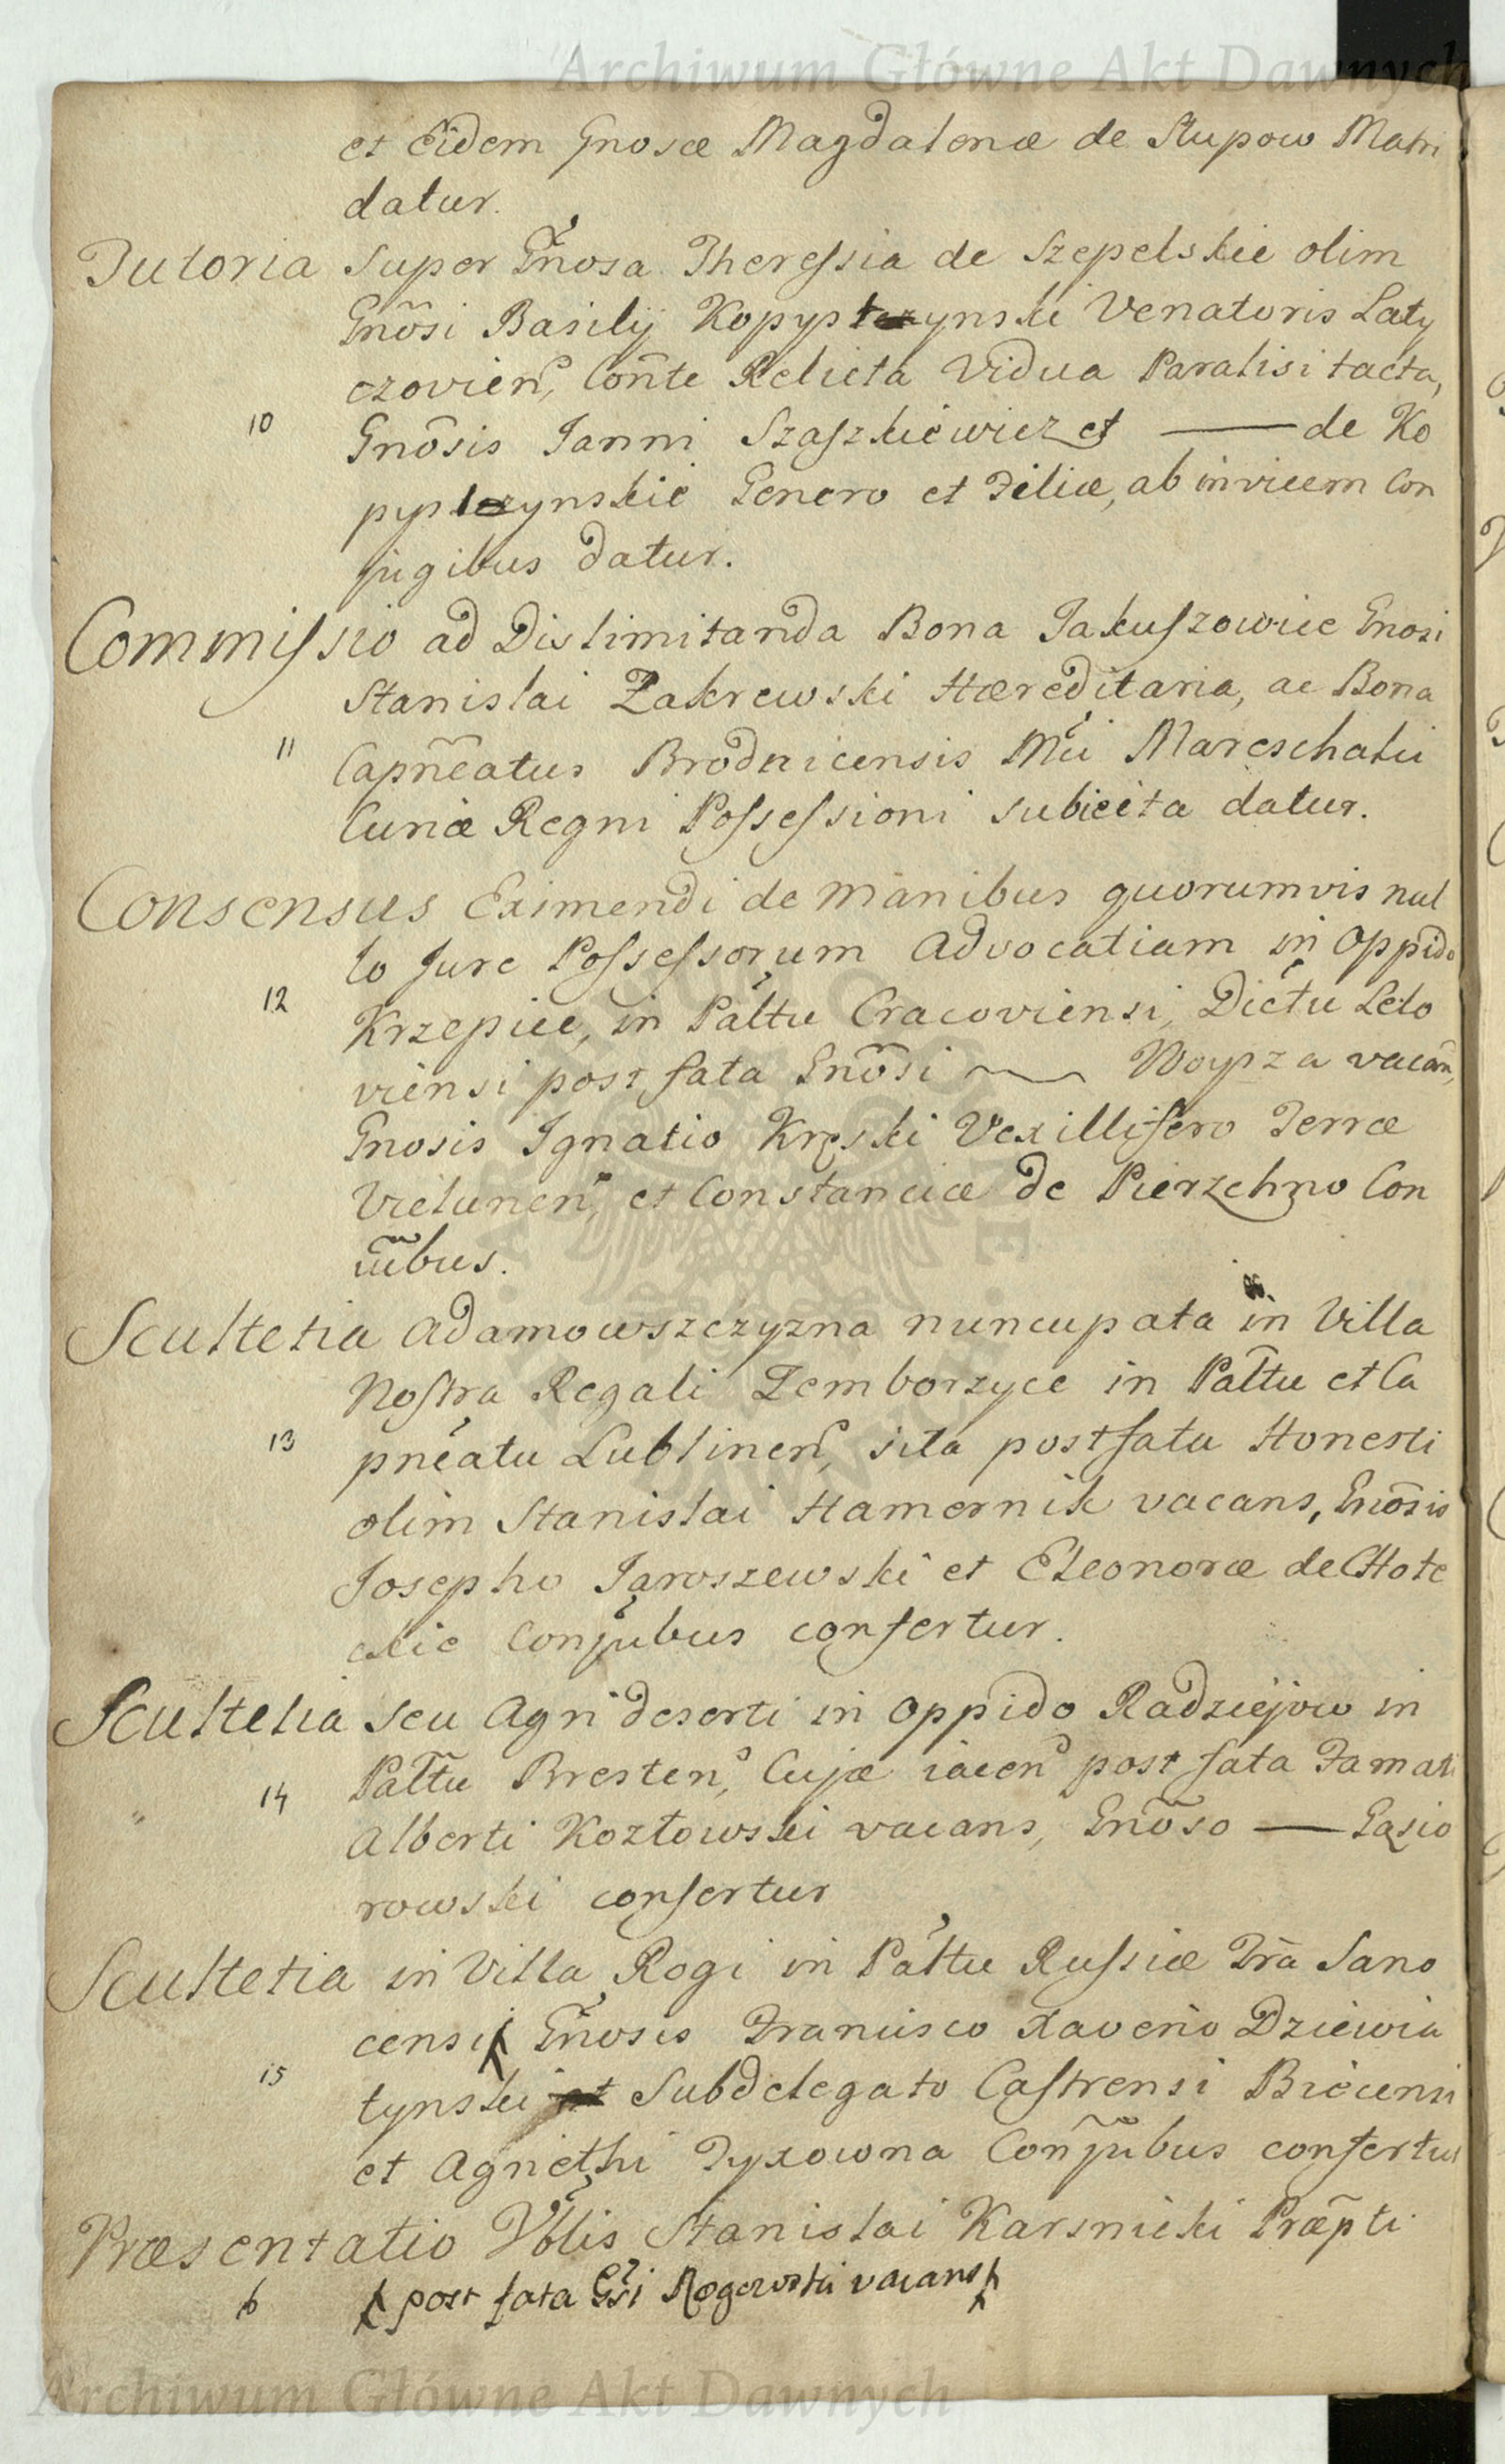 Archiwum Główne Akt Dawnych
et Eidem Gnosæ Magdalenæ de Słupow Matri
datur.
Tutoria super Gñosa Theressia de Szepelskie olim
Gnõsi Basilij Kopystczynski Venatoris Laty
czovien, Cõnte Relicta Vidua Paralisi tacta,
10 Gnõsis Janni Szaszkiewicz et — de Ko
pystczynskie Genero et Filiæ, ab invicem Con
jugibus datur.
Commissio ad Dislimitanda Bona Jakuszowice Gnosi
Stanislai Zakrewski Hæreditaria, ac Bona
11 Capnẽatus Brodnicensis Mci Mareschalci
Curiæ Regni Possessioni subiecta datur.
Consensus Eximendi de manibus quorumvis nul
lo Jure Possessorum Advocatiam in Oppido
12 Krzepice, in Paltu Cracoviensi, Dictu Lelo
viensi post fata Gnõsi — Woyza vacan,
Gnosis Ignatio Kręski Vexillifero Terræ
Vielunen, et Constanciæ de Pierzchno Con
iũbus.
Scultetia Adamowszczyzna nuncupata in Villa
Nostra Regali Zemborzyce in Pal̃tu et Ca
13 pneatu Lublinen, sita post fata Honesti
olim Stanislai Hamernik vacans, Gnõsis
Josepho Jaroszewski et Eleonoræ de Chote
ckie Conjubus confertur.
Scultetia seu Agri deserti in Oppido Radziejow in
14 Pal̃tu Bresten, Cujæ iacen post fata Famati
Alberti Kozłowski vacans, Gnõso — Gąsio
rowski confertur
Scultetia in Villa Rogi in Paltu Russiæ Trã Sano
censi Gñosis Francisco Xaverio Dziewia
15 tynski et Subdelegato Castrensi Biecensi
et Agnethi Tyxowna Conjũbus confertur
Præsentatio Vblis Stanislai Karsnicki Præp̃ti
6 post fata Gsi Rogowski vacans
Archiwum Główne Akt Dawnych